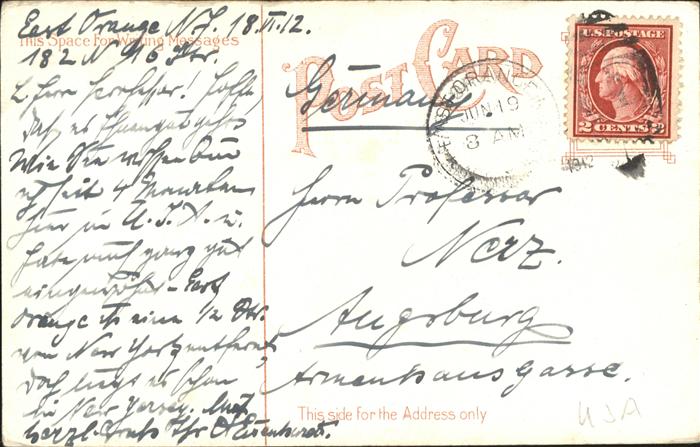 East Orange N.J. 18.VI.12.
This Space For Writing Messages
182 N
L. Herr Professor! Hoffe,
daß es Ihnen gut geht
Wie Sie wissen bin
seit 4 Monaten
hier in U.S.A. u.
habe mich ganz gut
eingewöhnt - East
Orange ist eine 1/2 Std.
von New York entfernt,
doch liegt es schon
in New Jersey. Mit
herzl. Gruß Ihr
POST CARD
Germany
EAST ORANGE
JUN 19
8 AM
1912
U.S. POSTAGE
2 CENTS 2
Herrn Professor
Nerz.
Augsburg
Armenhausgasse.
This side for the Address only
USA